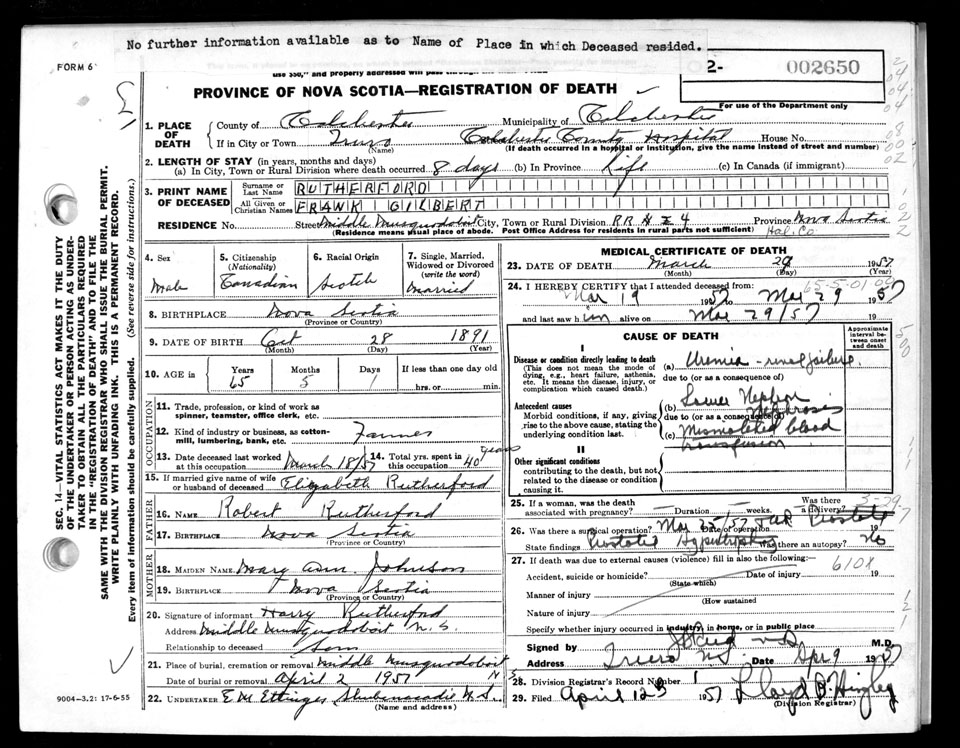 No further information available as to Name of Place in which Deceased resided.
FORM 6
use $50," and property addressed will pass through the
2- 002650
PROVINCE OF NOVA SCOTIA—REGISTRATION OF DEATH
For use of the Department only
1. PLACE OF DEATH
County of Colchester Municipality of Colchester
If in City or Town Truro (Name) Colchester County Hospital House No.
(If death occurred in a hospital or institution, give the name instead of street and number)
2. LENGTH OF STAY (in years, months and days)
(a) In City, Town or Rural Division where death occurred 8 days (b) In Province Life (c) In Canada (if immigrant)
3. PRINT NAME OF DECEASED
Surname or Last Name RUTHERFORD
All Given or Christian Names FRANK GILBERT
RESIDENCE No. Street Middle Musquodoboit City, Town or Rural Division RR # 4 Province Nova Scotia
(Residence means usual place of abode. Post Office Address for residents in rural parts not sufficient) Hal. Co.
4. Sex
Male
5. Citizenship (Nationality)
Canadian
6. Racial Origin
Scotch
7. Single, Married, Widowed or Divorced (write the word)
Married
8. BIRTHPLACE Nova Scotia
(Province or Country)
9. DATE OF BIRTH Oct 28 1891
(Month) (Day) (Year)
10. AGE in Years Months Days If less than one day old
65 5 1 hrs. or min.
OCCUPATION
11. Trade, profession, or kind of work as spinner, teamster, office clerk, etc.
12. Kind of industry or business, as cotton-mill, lumbering, bank, etc. Farmer
13. Date deceased last worked at this occupation March 18/57
14. Total yrs. spent in this occupation 40 years
15. If married give name of wife or husband of deceased Elizabeth Rutherford
FATHER
16. NAME Robert Rutherford
17. BIRTHPLACE Nova Scotia
(Province or Country)
MOTHER
18. MAIDEN NAME Mary Ann Johnson
19. BIRTHPLACE Nova Scotia
(Province or Country)
20. Signature of informant Harry Rutherford
Address Middle Musquodoboit N.S.
Relationship to deceased Son
21. Place of burial, cremation or removal Middle Musquodoboit
Date of burial or removal April 2 1957
22. UNDERTAKER E M Ettinger Shubenacadie N.S.
(Name and address)
9004-3.2: 17-6-55
SEC. 14—VITAL STATISTICS ACT MAKES IT THE DUTY
OF THE UNDERTAKER OR PERSON ACTING AS UNDER-
TAKER TO OBTAIN ALL THE PARTICULARS REQUIRED
IN THE "REGISTRATION OF DEATH" AND TO FILE THE
SAME WITH THE DIVISION REGISTRAR WHO SHALL ISSUE THE BURIAL PERMIT.
WRITE PLAINLY WITH UNFADING INK. THIS IS A PERMANENT RECORD.
Every item of information should be carefully supplied. (See reverse side for instructions.)
MEDICAL CERTIFICATE OF DEATH
23. DATE OF DEATH March 29 1957
(Month) (Day) (Year)
24. I HEREBY CERTIFY that I attended deceased from:
65-5-01
Mar 19 1957 to Mar 29 1957
and last saw him alive on Mar 29/57 19
CAUSE OF DEATH
Approximate interval between onset and death
I
Disease or condition directly leading to death
(This does not mean the mode of dying, e.g., heart failure, asthenia, etc. It means the disease, injury, or complication which caused death.)
(a) Uremia - renal failure
due to (or as a consequence of)
Antecedent causes
Morbid conditions, if any, giving rise to the above cause, stating the underlying condition last.
(b) Lower Nephron Nephrosis
due to (or as a consequence of)
(c) Mismatched blood transfusion
II
Other significant conditions
contributing to the death, but not related to the disease or condition causing it.
25. If a woman, was the death associated with pregnancy? Duration weeks. Was there a delivery?
26. Was there a surgical operation? Mar 25/57 Date of operation Prostate 19
State findings Prostatic Hypertrophy Was there an autopsy? No
27. If death was due to external causes (violence) fill in also the following:
Accident, suicide or homicide? Date of injury 610X 19
(State which)
Manner of injury
(How sustained
Nature of injury
Specify whether injury occurred in industry, in home, or in public place
Signed by M.D.
Address Truro N.S. Date Apr 9 1957
28. Division Registrar's Record Number 1
29. Filed April 12 1957 Lloyd B. Hingley
(Division Registrar)